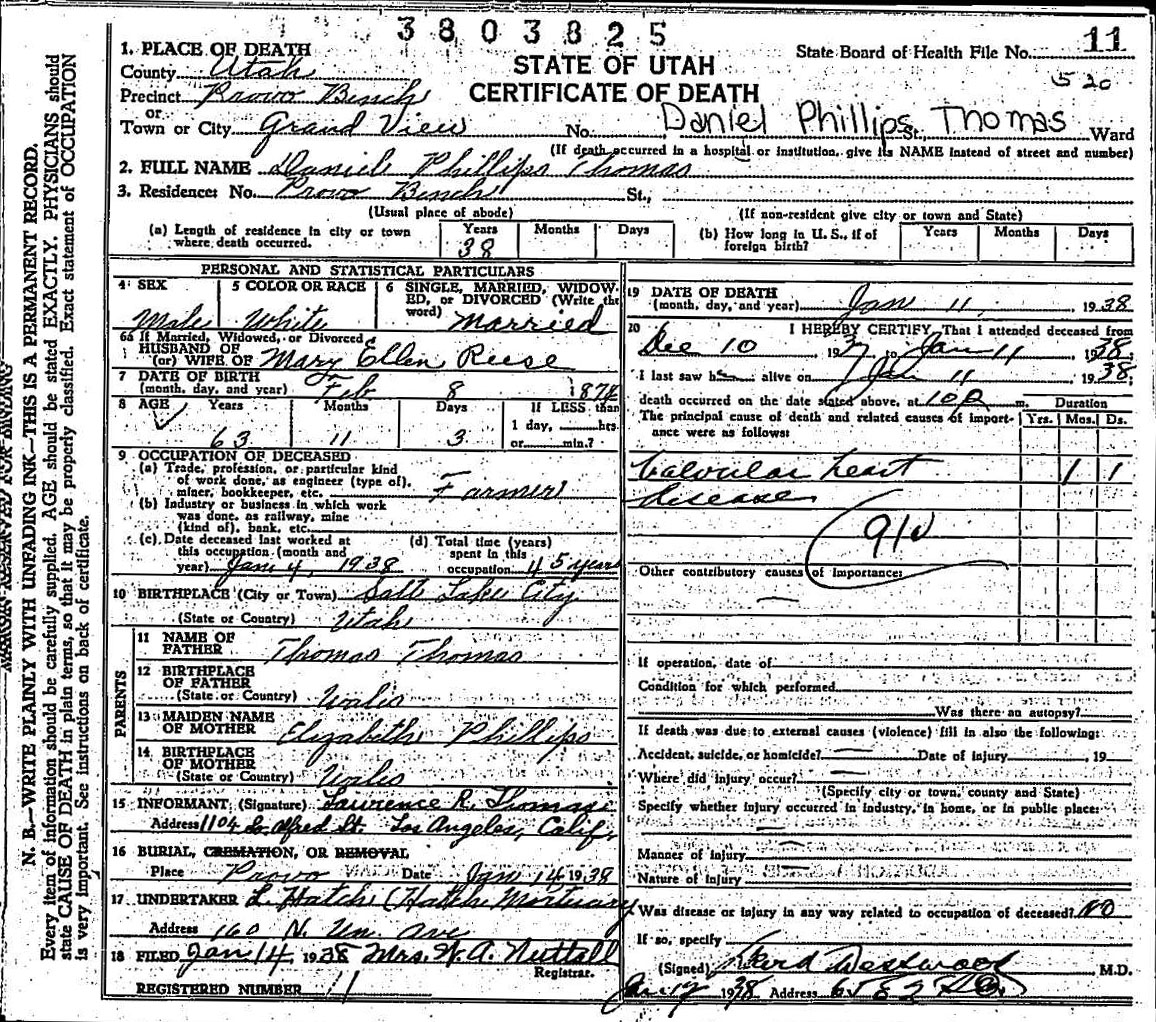 3803825
State Board of Health File No. 11
520
STATE OF UTAH
CERTIFICATE OF DEATH
1. PLACE OF DEATH
County Utah
Precinct Provo Bench
or
Town or City Grand View No. Daniel Phillips St., Thomas Ward
(If death occurred in a hospital or institution, give its NAME instead of street and number)
2. FULL NAME Daniel Phillips Thomas
3. Residence: No. Provo Bench St.,
(Usual place of abode) (If non-resident give city or town and State)
(a) Length of residence in city or town where death occurred. Years 38 Months Days
(b) How long in U. S., if of foreign birth? Years Months Days
PERSONAL AND STATISTICAL PARTICULARS
4 SEX Male
5 COLOR OR RACE White
6 SINGLE, MARRIED, WIDOWED, or DIVORCED (Write the word) Married
6a If Married, Widowed, or Divorced
HUSBAND OF
(or) WIFE OF Mary Ellen Reese
7 DATE OF BIRTH
(month, day, and year) Feb 8 1874
8 AGE Years 63 Months 11 Days 3
If LESS than
1 day, hrs.
or min.?
9 OCCUPATION OF DECEASED
(a) Trade, profession, or particular kind
of work done, as engineer (type of),
miner, bookkeeper, etc. Farmer
(b) Industry or business in which work
was done, as railway, mine
(kind of), bank, etc.
(c) Date deceased last worked at
this occupation (month and
year) Jan 4, 1938
(d) Total time (years)
spent in this
occupation 45 years
10 BIRTHPLACE (City or Town) Salt Lake City
(State or Country) Utah
PARENTS
11 NAME OF
FATHER Thomas Thomas
12 BIRTHPLACE
OF FATHER
(State or Country) Wales
13 MAIDEN NAME
OF MOTHER Elizabeth Phillips
14 BIRTHPLACE
OF MOTHER
(State or Country) Wales
15 INFORMANT (Signature) Lawrence R. Thomas
Address 1104 So. Alfred St. Los Angeles, Calif.
16 BURIAL, CREMATION, OR REMOVAL
Place Provo Date Jan 14 1938
17 UNDERTAKER L. Hatch (Hatch Mortuary
Address 160 N. Un. Ave
18 FILED Jan 14, 1938 Mrs. W. A. Nuttall
Registrar.
REGISTERED NUMBER 11
19 DATE OF DEATH
(month, day, and year) Jan 11, 1938
20 I HEREBY CERTIFY, That I attended deceased from
Dec 10 1937 to Jan 11 1938
I last saw h alive on Jan 11, 1938;
death occurred on the date stated above, at 10 P m.
Duration
The principal cause of death and related causes of importance were as follows: Yrs. Mos. Ds.
Valvular heart 1 1
disease
Other contributory causes of importance:
If operation, date of
Condition for which performed
Was there an autopsy?
If death was due to external causes (violence) fill in also the following:
Accident, suicide, or homicide? Date of injury , 19
Where did injury occur?
(Specify city or town, county and State)
Specify whether injury occurred in industry, in home, or in public place:
Manner of injury
Nature of injury
Was disease or injury in any way related to occupation of deceased? No
If so, specify
(Signed) Westwood M.D.
1938 Address
MARGIN RESERVED FOR BINDING
N. B.—WRITE PLAINLY WITH UNFADING INK—THIS IS A PERMANENT RECORD.
Every item of information should be carefully supplied. AGE should be stated EXACTLY. PHYSICIANS should
state CAUSE OF DEATH in plain terms, so that it may be properly classified. Exact statement of OCCUPATION
is very important. See instructions on back of certificate.